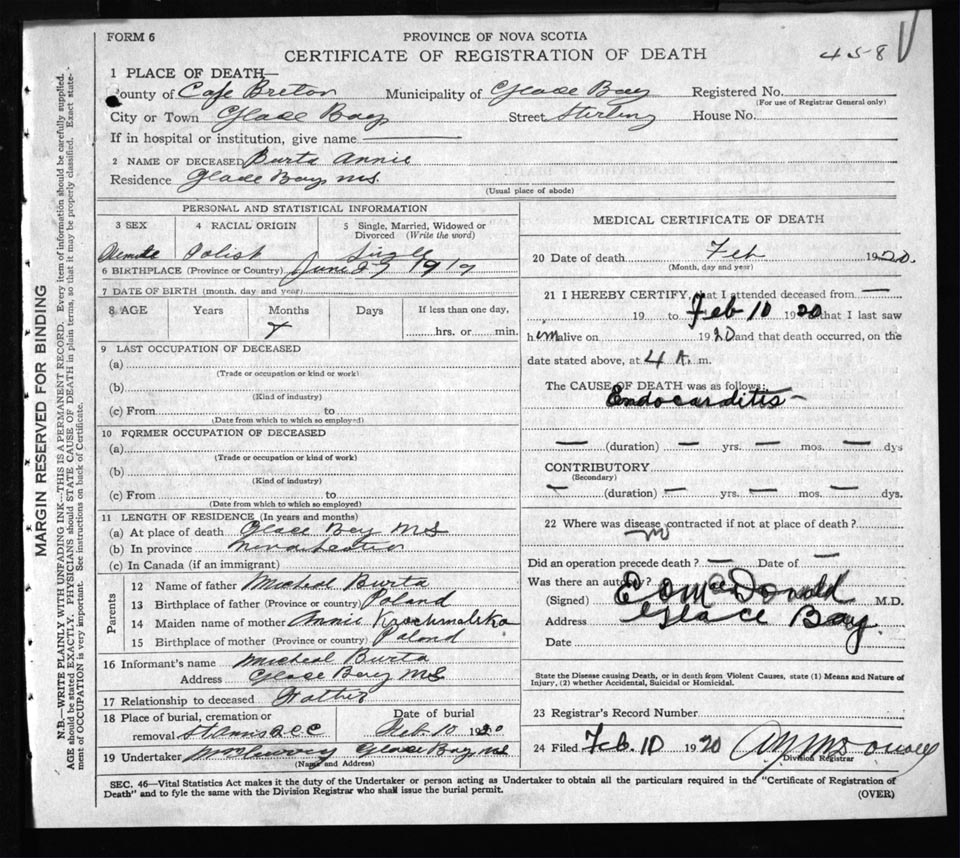 FORM 6
PROVINCE OF NOVA SCOTIA
CERTIFICATE OF REGISTRATION OF DEATH
458
1 PLACE OF DEATH—
County of Cape Breton Municipality of Glace Bay Registered No.
(For use of Registrar General only)
City or Town Glace Bay Street Sterling House No.
If in hospital or institution, give name
2 NAME OF DECEASED Burta Annie
Residence Glace Bay N.S.
(Usual place of abode)
PERSONAL AND STATISTICAL INFORMATION
3 SEX
4 RACIAL ORIGIN
5 Single, Married, Widowed or Divorced (Write the word)
Female Polish Single
6 BIRTHPLACE (Province or Country) June 27 1919
7 DATE OF BIRTH (month, day and year)
8 AGE Years Months Days If less than one day,
hrs. or min.
9 LAST OCCUPATION OF DECEASED
(a)
(Trade or occupation or kind or work)
(b)
(Kind of industry)
(c) From to
(Date from which to which so employed)
10 FORMER OCCUPATION OF DECEASED
(a)
(Trade or occupation or kind of work)
(b)
(Kind of industry)
(c) From to
(Date from which to which so employed)
11 LENGTH OF RESIDENCE (In years and months)
(a) At place of death Glace Bay N.S.
(b) In province
(c) In Canada (if an immigrant)
Parents
12 Name of father Micheal Burta
13 Birthplace of father (Province or country) Poland
14 Maiden name of mother Annie Krochmalska
15 Birthplace of mother (Province or country) Poland
16 Informant's name Micheal Burta
Address Glace Bay N.S.
17 Relationship to deceased Father
18 Place of burial, cremation or removal St Annis Date of burial Feb. 10 1920
19 Undertaker Glace Bay N.S.
(Name and Address)
MEDICAL CERTIFICATE OF DEATH
20 Date of death Feb 1920.
(Month, day and year)
21 I HEREBY CERTIFY, that I attended deceased from —
19 to Feb 10 1920 that I last saw
him alive on 1920 and that death occurred, on the
date stated above, at 4 A. m.
The CAUSE OF DEATH was as follows:
Endocarditis —
— (duration) — yrs. — mos. — dys
CONTRIBUTORY
(Secondary)
— (duration) — yrs. — mos. — dys.
22 Where was disease contracted if not at place of death?
no
Did an operation precede death? — Date of —
Was there an autopsy?
(Signed) McDonald M.D.
Address Glace Bay
Date
State the Disease causing Death, or in death from Violent Causes, state (1) Means and Nature of
Injury, (2) whether Accidental, Suicidal or Homicidal.
23 Registrar's Record Number
24 Filed Feb. 10 1920
Division Registrar
SEC. 46—Vital Statistics Act makes it the duty of the Undertaker or person acting as Undertaker to obtain all the particulars required in the "Certificate of Registration of
Death" and to fyle the same with the Division Registrar who shall issue the burial permit.
(OVER)
MARGIN RESERVED FOR BINDING
N.B.—WRITE PLAINLY, WITH UNFADING INK—THIS IS A PERMANENT RECORD. Every item of information should be carefully supplied.
AGE should be stated EXACTLY. PHYSICIANS should STATE CAUSE OF DEATH in plain terms, so that it may be properly classified. Exact state-
ment of OCCUPATION is very important. See instructions on back of Certificate.